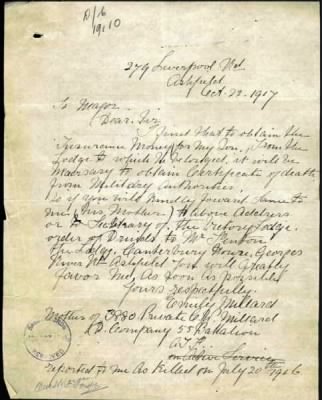 279 Liverpool Rd
Ashfield
Oct. 22. 1917
To Major
Dear Sir
I find that to obtain the
Insurance Money for My Son, From the
Lodge to which He belonged, it will be
to obtain Certificate of death
From Military Authorities.
So if you will kindly forward same to
me (His Mother) to above Address
or to Secretary of the Victory Lodge.
order of Druids to Mr
The Lodge, Canterbury House, Georges
River Rd Ashfield You will Greatly
favor me, As soon as possible
Yours respectfully
Emily Millard
Mother of 3880 Private C. Millard
D. Company 55 Battalion
A.I.F.
on Active Service
reported to me As Killed on July 20th 1916